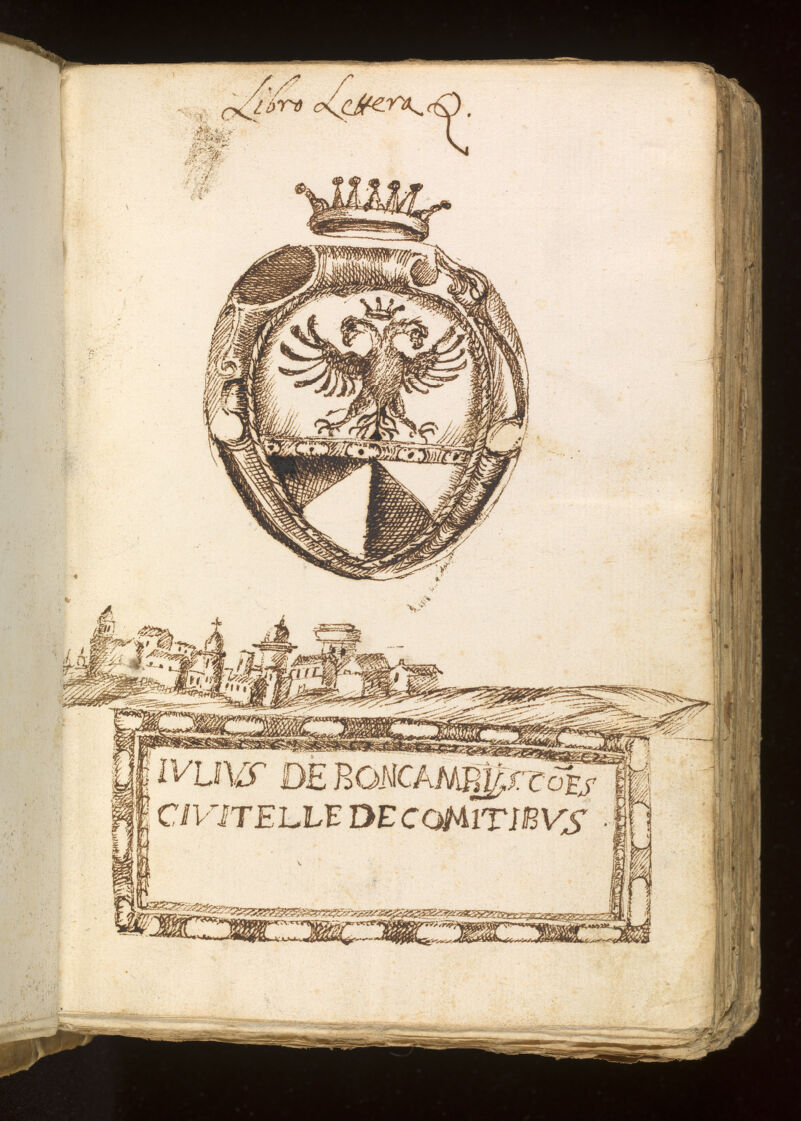 Libro Lettera Q.
IVLIVS DE BONCAMBIIS. COES
CIVITELLE DE COMITIBVS